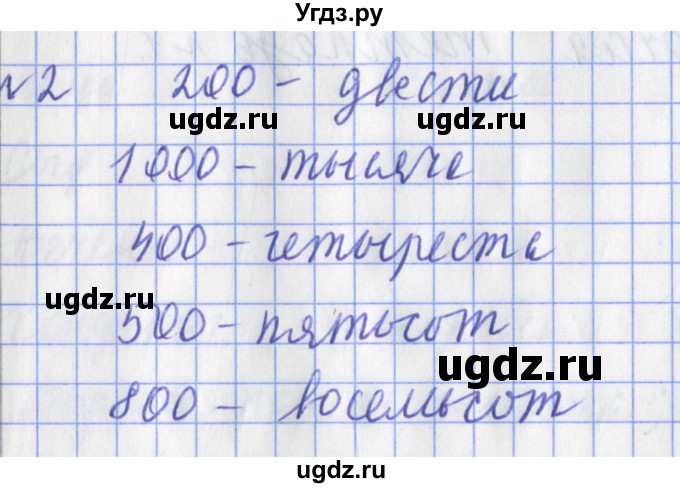 Угдз.ру
№2 200 - двести
ugdz.ru ugdz.ru
1000 - тысяча
400 - четыреста
ugdz.ru
500 - пятьсот
ugdz.ru
800 - восемьсот
ugdz.ru